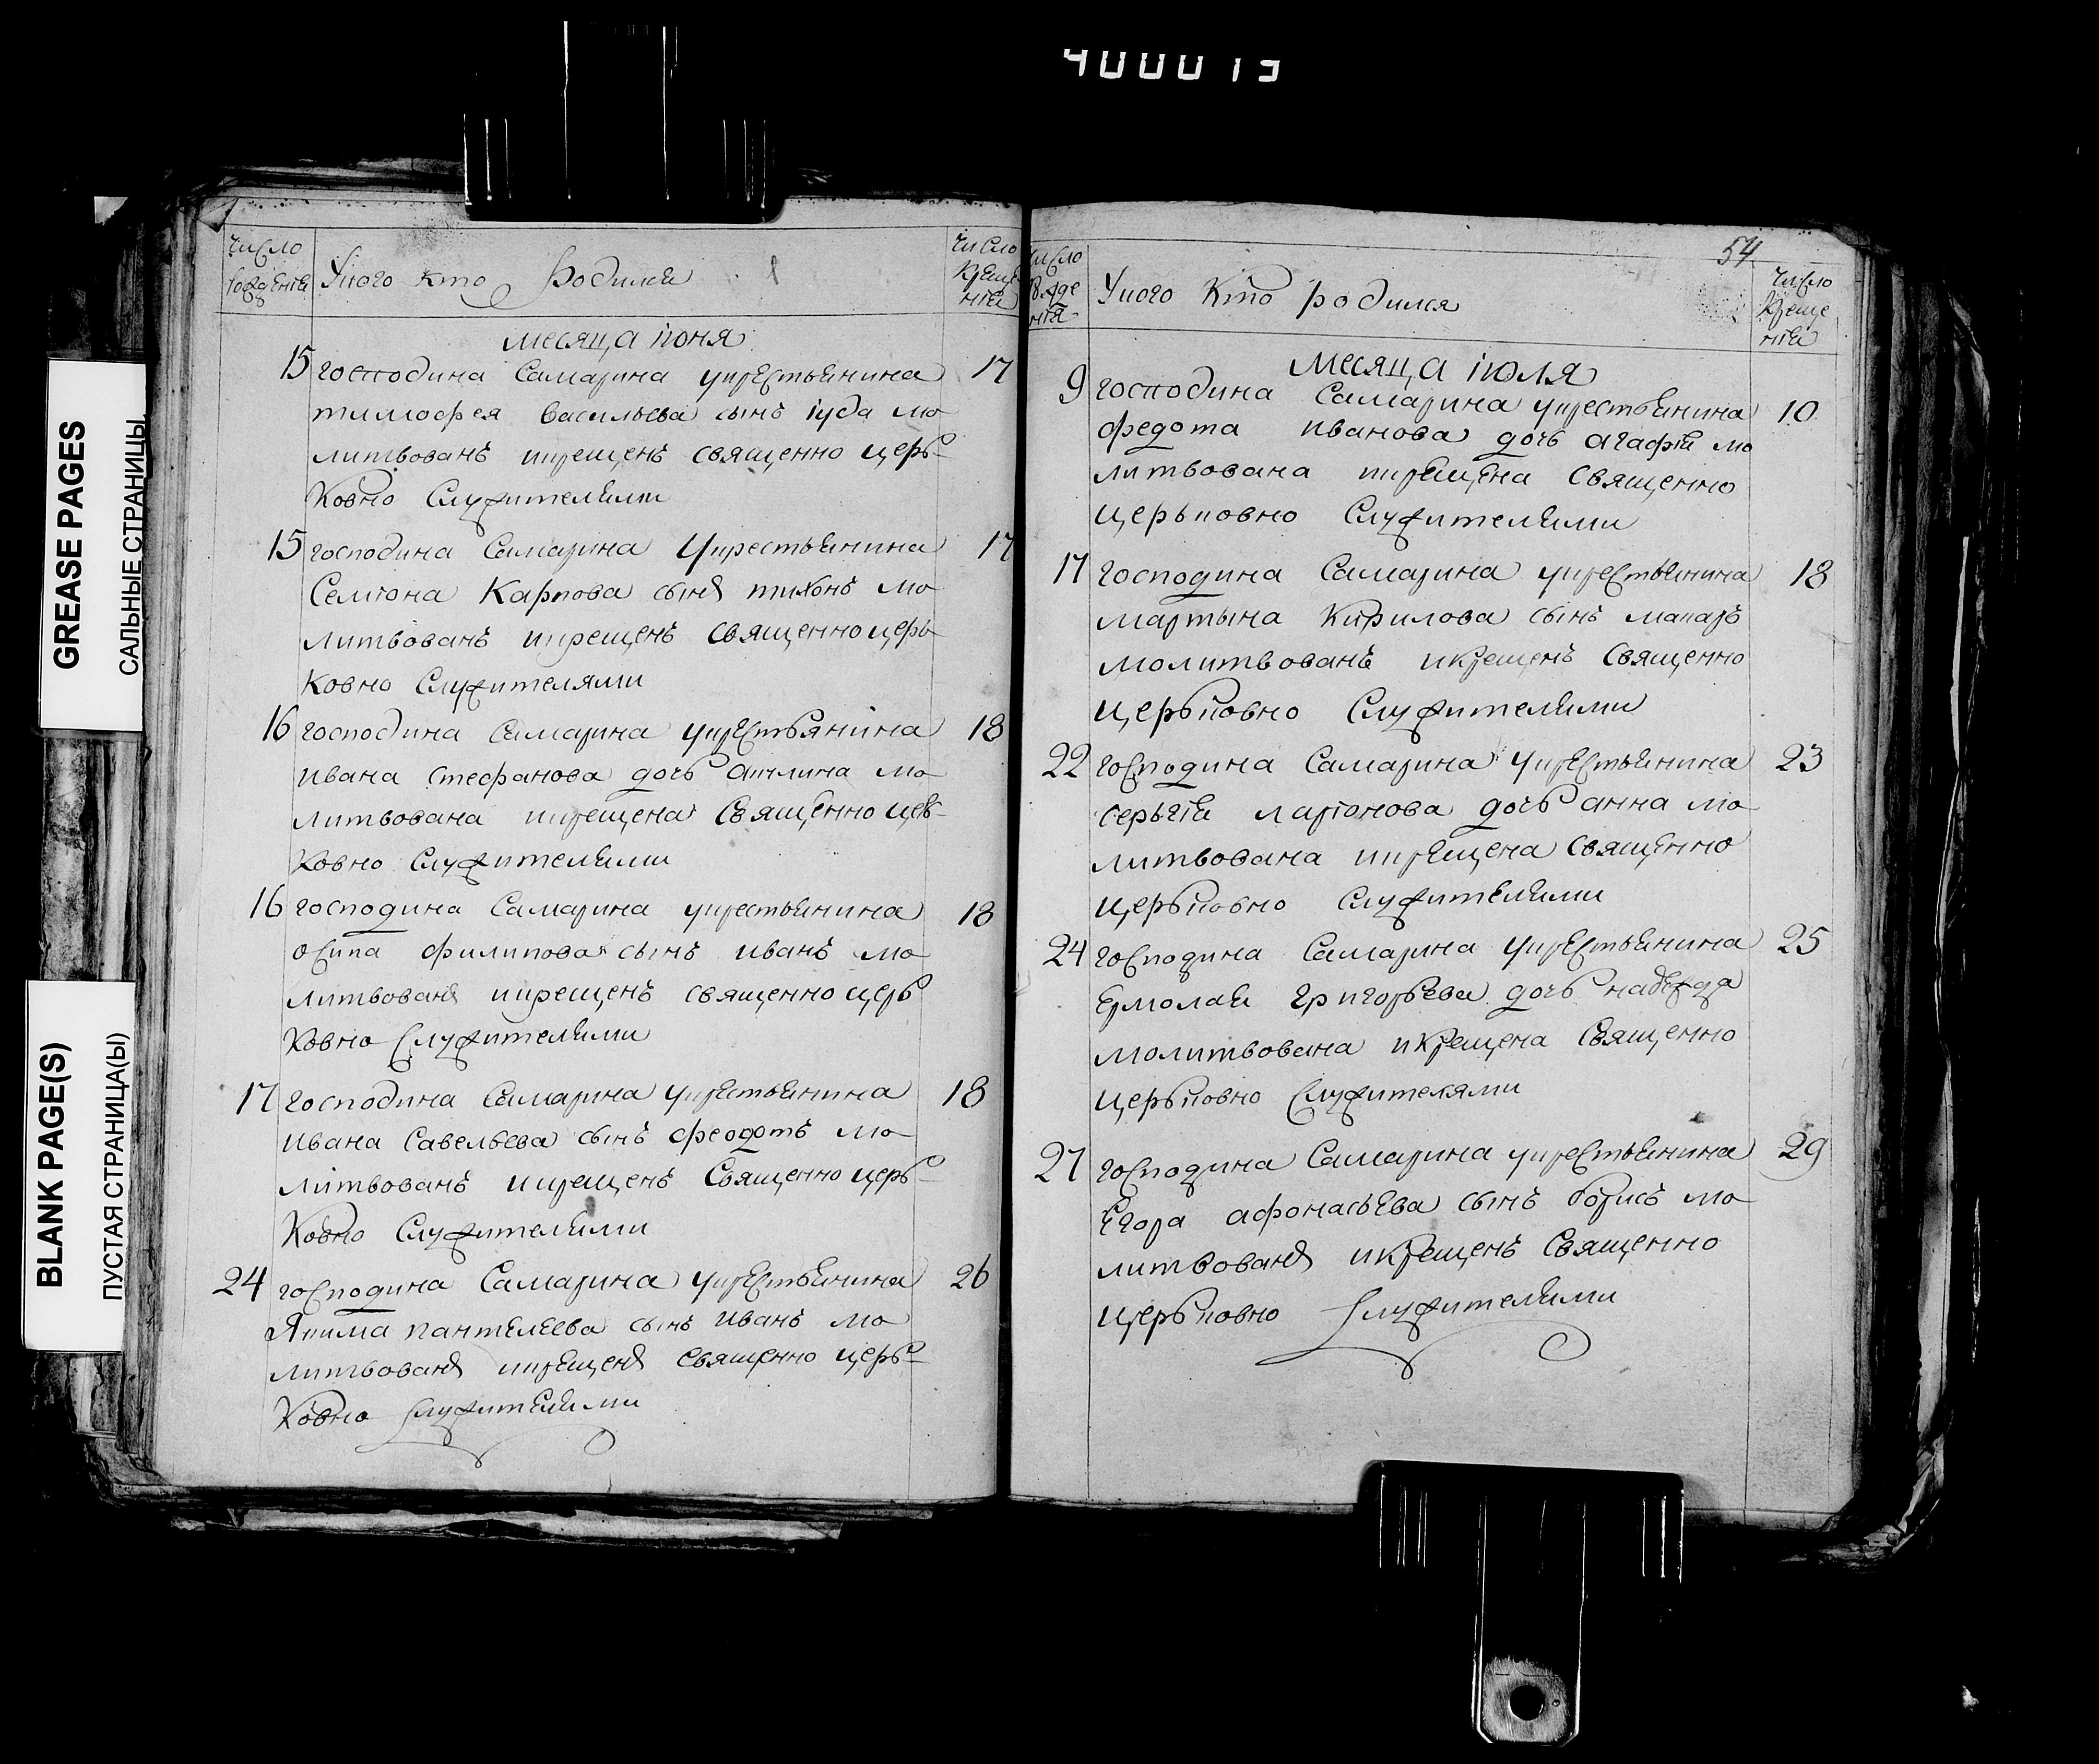 400013
GREASE PAGES
САЛЬНЫЕ СТРАНИЦЫ
BLANK PAGE(S)
ПУСТАЯ СТРАНИЦА(Ы)
число рождения
Укого кто родился
число крещения
месяца июня
15 господина Самарина укрестьянина 17
тимофея васильева сынъ іуда мо
литвованъ икрещенъ священно церь
ковно служителями
15 господина Самарина укрестьянина 17
Семиона Карпова сынъ тихонъ мо
литвованъ икрещенъ священно церь
ковно служителями
16 господина Самарина укрестьянина 18
ивана стефанова дочь акилина мо
литвована икрещена священно цер
ковно служителями
16 господина Самарина укрестьянина 18
осипа филипова сынъ иванъ мо
литвованъ икрещенъ священно церь
ковно служителями
17 господина Самарина укрестьянина 18
ивана Савельева сынъ феодотъ мо
литвованъ икрещенъ священно церь
ковно служителями
24 господина Самарина укрестьянина 26
Якима пантелеева сынъ иванъ мо
литвованъ икрещенъ священно церь
ковно служителями
54
число рожде ния
Укого кто родился
число креще ния
месяца июля
9 господина Самарина укрестьянина 10
федота иванова дочь агафия мо
литвована икрещена священно
церьковно служителями
17 господина Самарина укрестьянина 18
мартына Кирилова сынъ макаръ
молитвованъ икрещенъ священно
церьковно служителями
22 господина Самарина укрестьянина 23
серьгия лариoнова дочь анна мо
литвована икрещена священно
церьковно служителями
24 господина Самарина укрестьянина 25
Ермолая григорьева дочь надежда
молитвована икрещена священно
церьковно служителями
27 господина Самарина укрестьянина 29
Егора афонасьева сынъ борисъ мо
литвованъ икрещенъ священно
церьковно служителями